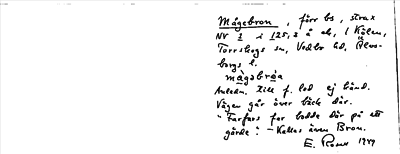 Mågebron, förr bs, strax
NV 1 i 125,2 å ek, i Kålen,
Torrskogs sn, Vedbo hd, Älvs-
borgs l.
mågabròa
Anledn. till f. led ej känd.
Vägen går över bäck där.
"Farfars far bodde där på ett
gärde". - Kallas även Bron.
E. Rosell 1949